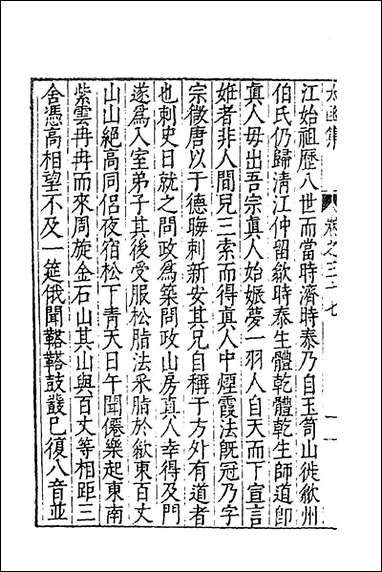 太函集 卷之三十七
江始祖歷八世而當時濟時泰乃自玉笥山徙歙州
伯氏仍歸淸江仲留歙時泰生體乾體乾生師道卽
眞人毋出吾宗眞人始娠夢一羽人自天而下宣言
姙者非人間兒三索而得眞人中煙霞法旣冠乃字
宗微唐以于德晦刺新安其兄自稱于方外有道者
也刺史日就之問政爲築問政山房眞人幸得及門
遂爲入室弟子其後受服松脂法采脂於歙東百丈
山山絕高同侶夜宿松下靑天日午聞僊樂起東南
紫雲冉冉而來周旋金石山其山與百丈等相距三
舍憑高相望不及一筵俄聞鞳鞳鼓叢已復八音並